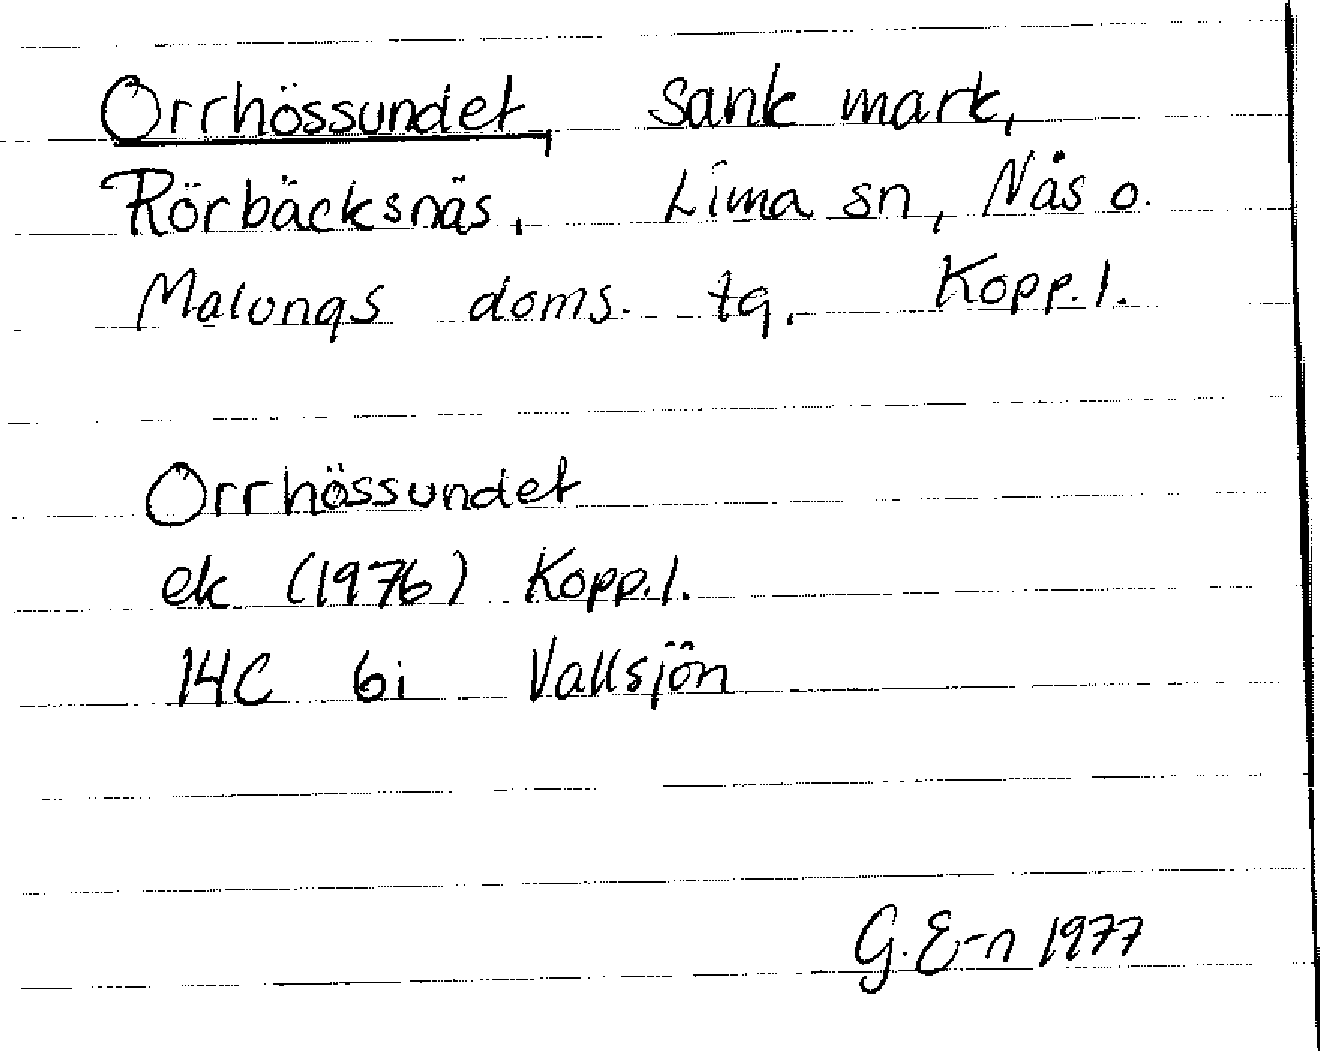 Orrhössundet, Sank mark,
Rörbäcksnäs, Lima sn, Nås o.
Malungs doms. tg, Kopp. l.
Orrhössundet
ek (1976) Kopp. l.
14C 6i Vallsjön
G. E-n 1977